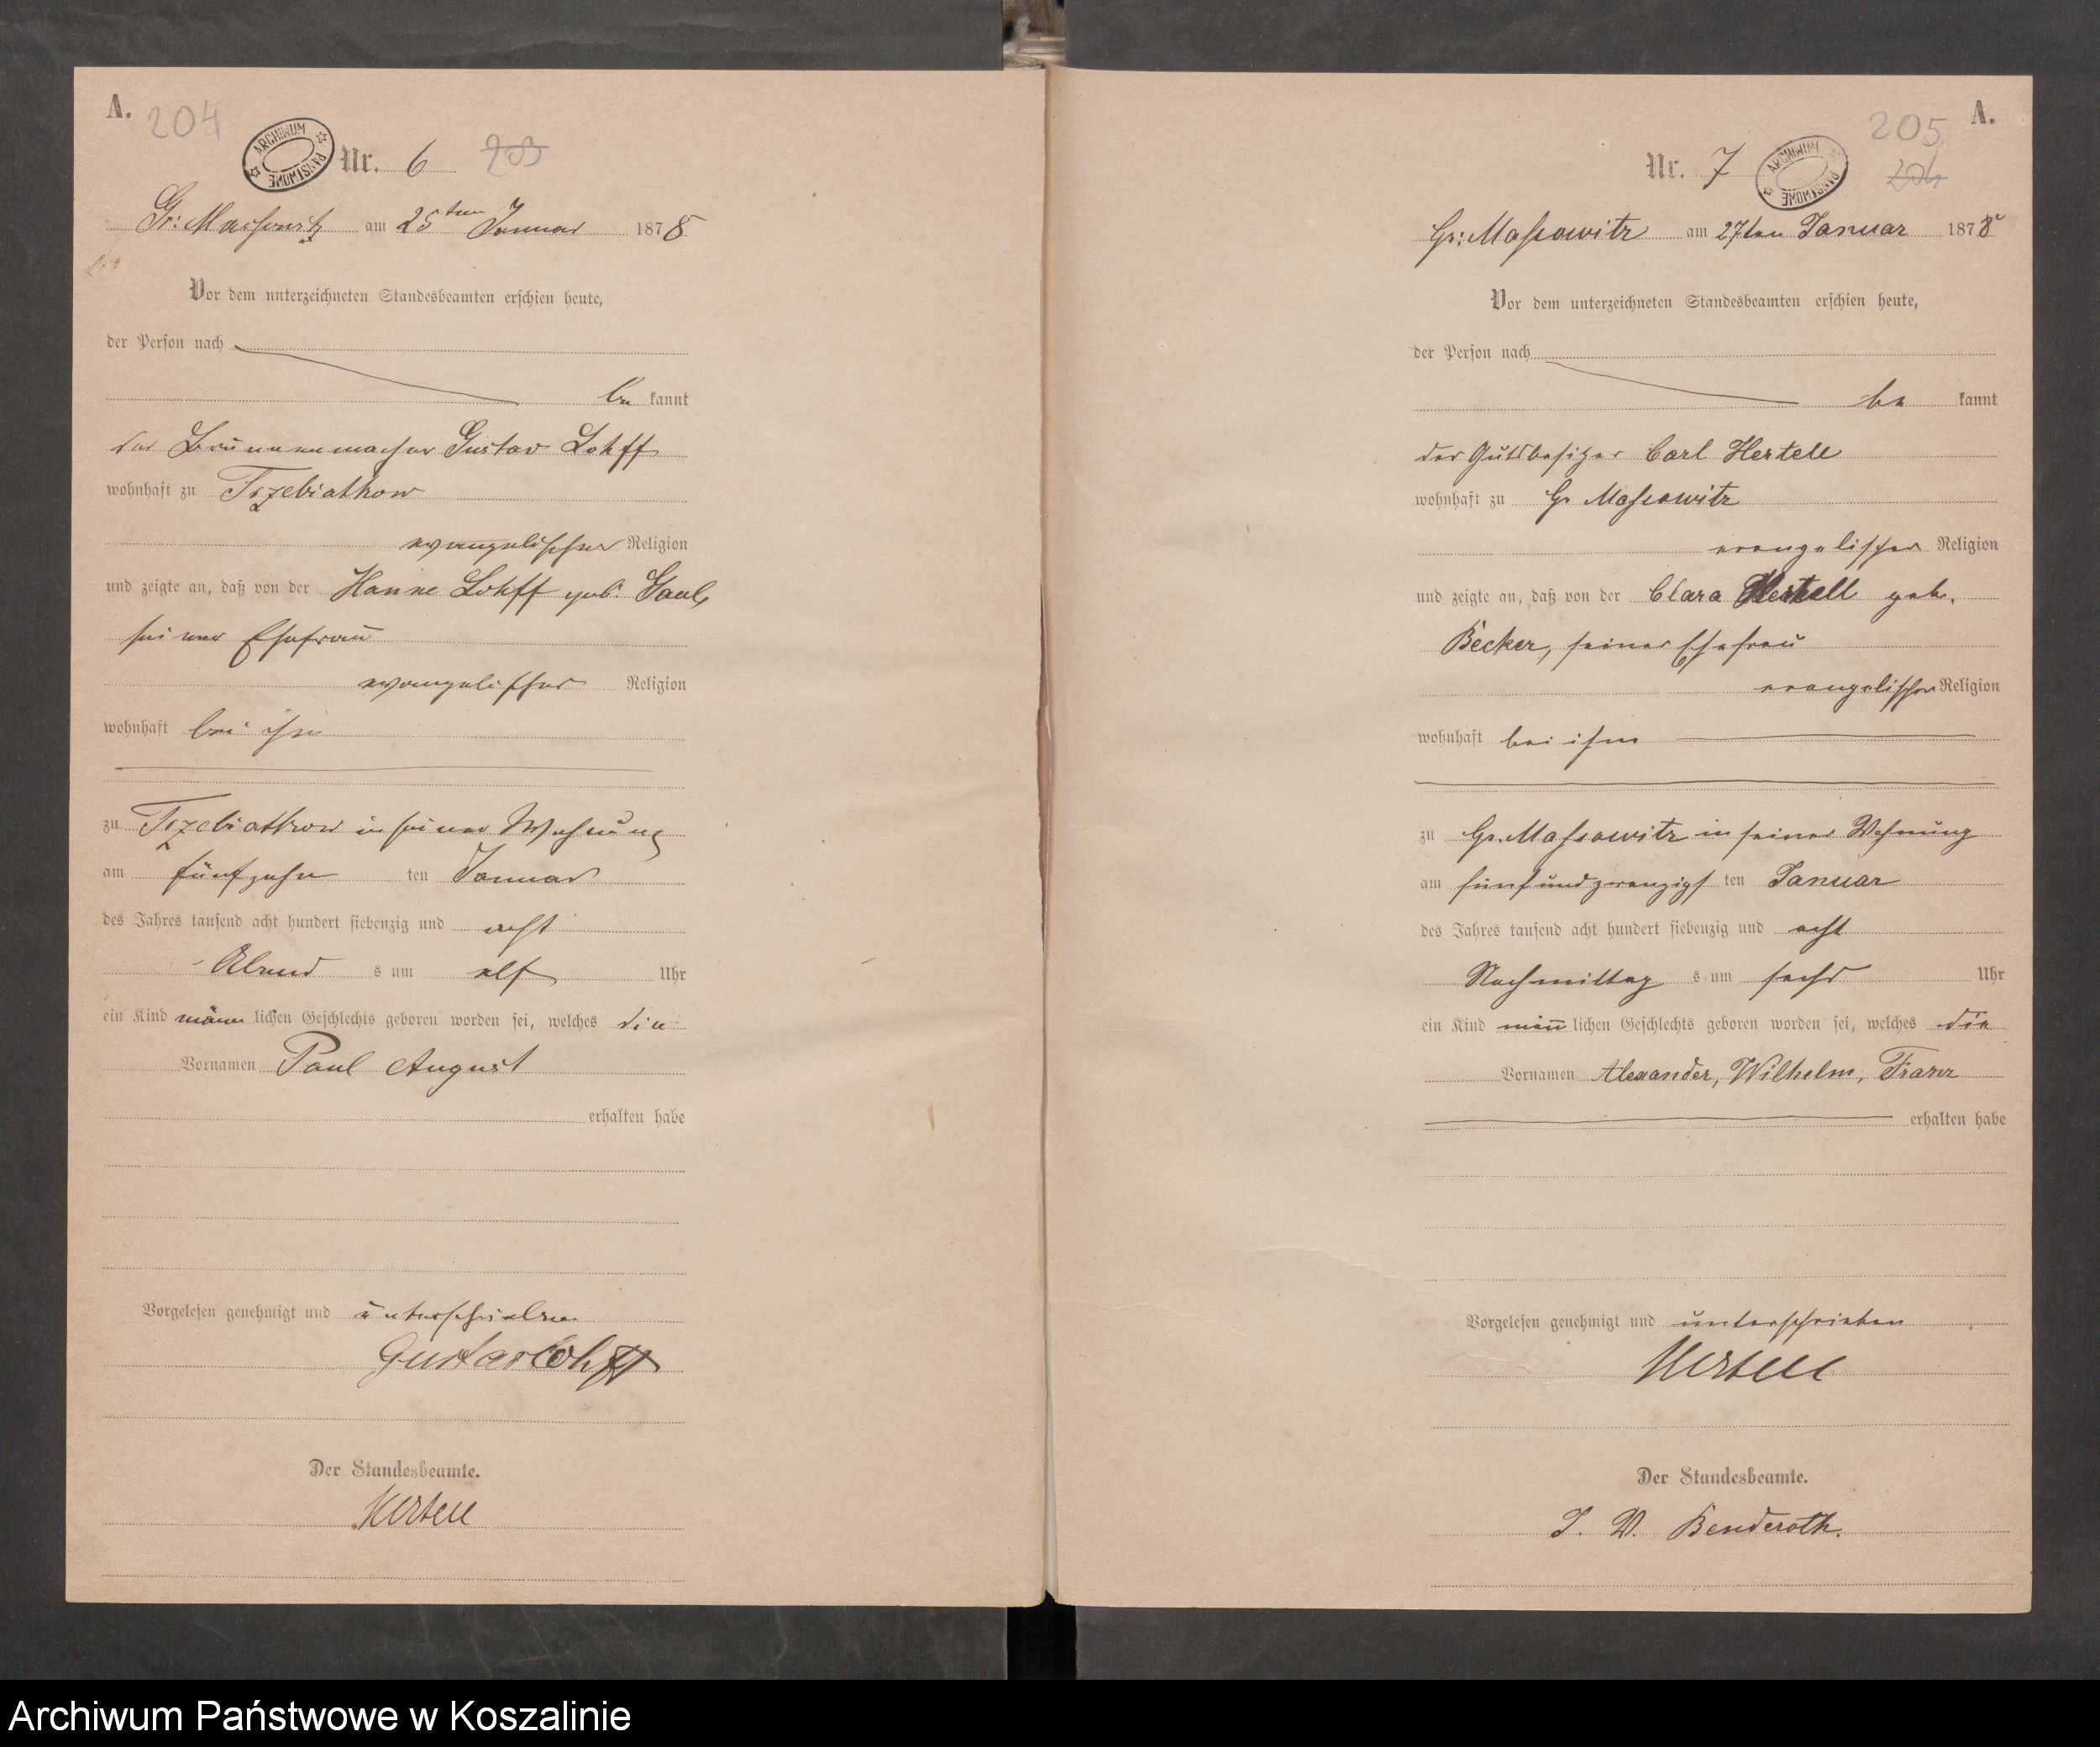 A. 204
ARCHIWUM PAŃSTWOWE
Nr. 6 203
Gr: Massowitz am 25ten Januar 1878
Vor dem unterzeichneten Standesbeamten erschien heute,
der Person nach
be kannt
der Brunnenmacher Gustav Lohff
wohnhaft zu Trzebiatkow
evangelischer Religion
und zeigte an, daß von der Hanne Lohff geb. Gaul,
seiner Ehefrau
evangelischer Religion
wohnhaft bei ihm
zu Trzebiatkow in seiner Wohnung
am fünfzehn ten Januar
des Jahres tausend acht hundert siebenzig und acht
Abend s um elf Uhr
ein Kind männ lichen Geschlechts geboren worden sei, welches die
Vornamen Paul August
erhalten habe
Vorgelesen genehmigt und unterschrieben
Gustav Lohff
Der Standesbeamte.
Hertell
205 A.
Nr. 7 ARCHIWUM PAŃSTWOWE 204
Gr: Massowitz am 27ten Januar 1878
Vor dem unterzeichneten Standesbeamten erschien heute,
der Person nach
be kannt
der Gutsbesitzer Carl Hertell
wohnhaft zu Gr Massowitz
evangelischer Religion
und zeigte an, daß von der Clara Hertell geb.
Becker, seiner Ehefrau
evangelischer Religion
wohnhaft bei ihm
zu Gr. Massowitz in seiner Wohnung
am fünfundzwanzigs ten Januar
des Jahres tausend acht hundert siebenzig und acht
Nachmittag s um sechs Uhr
ein Kind männ lichen Geschlechts geboren worden sei, welches die
Vornamen Alexander, Wilhelm, Franz
erhalten habe
Vorgelesen genehmigt und unterschrieben
Hertell
Der Standesbeamte.
I. V. Benderoth.
Archiwum Państwowe w Koszalinie